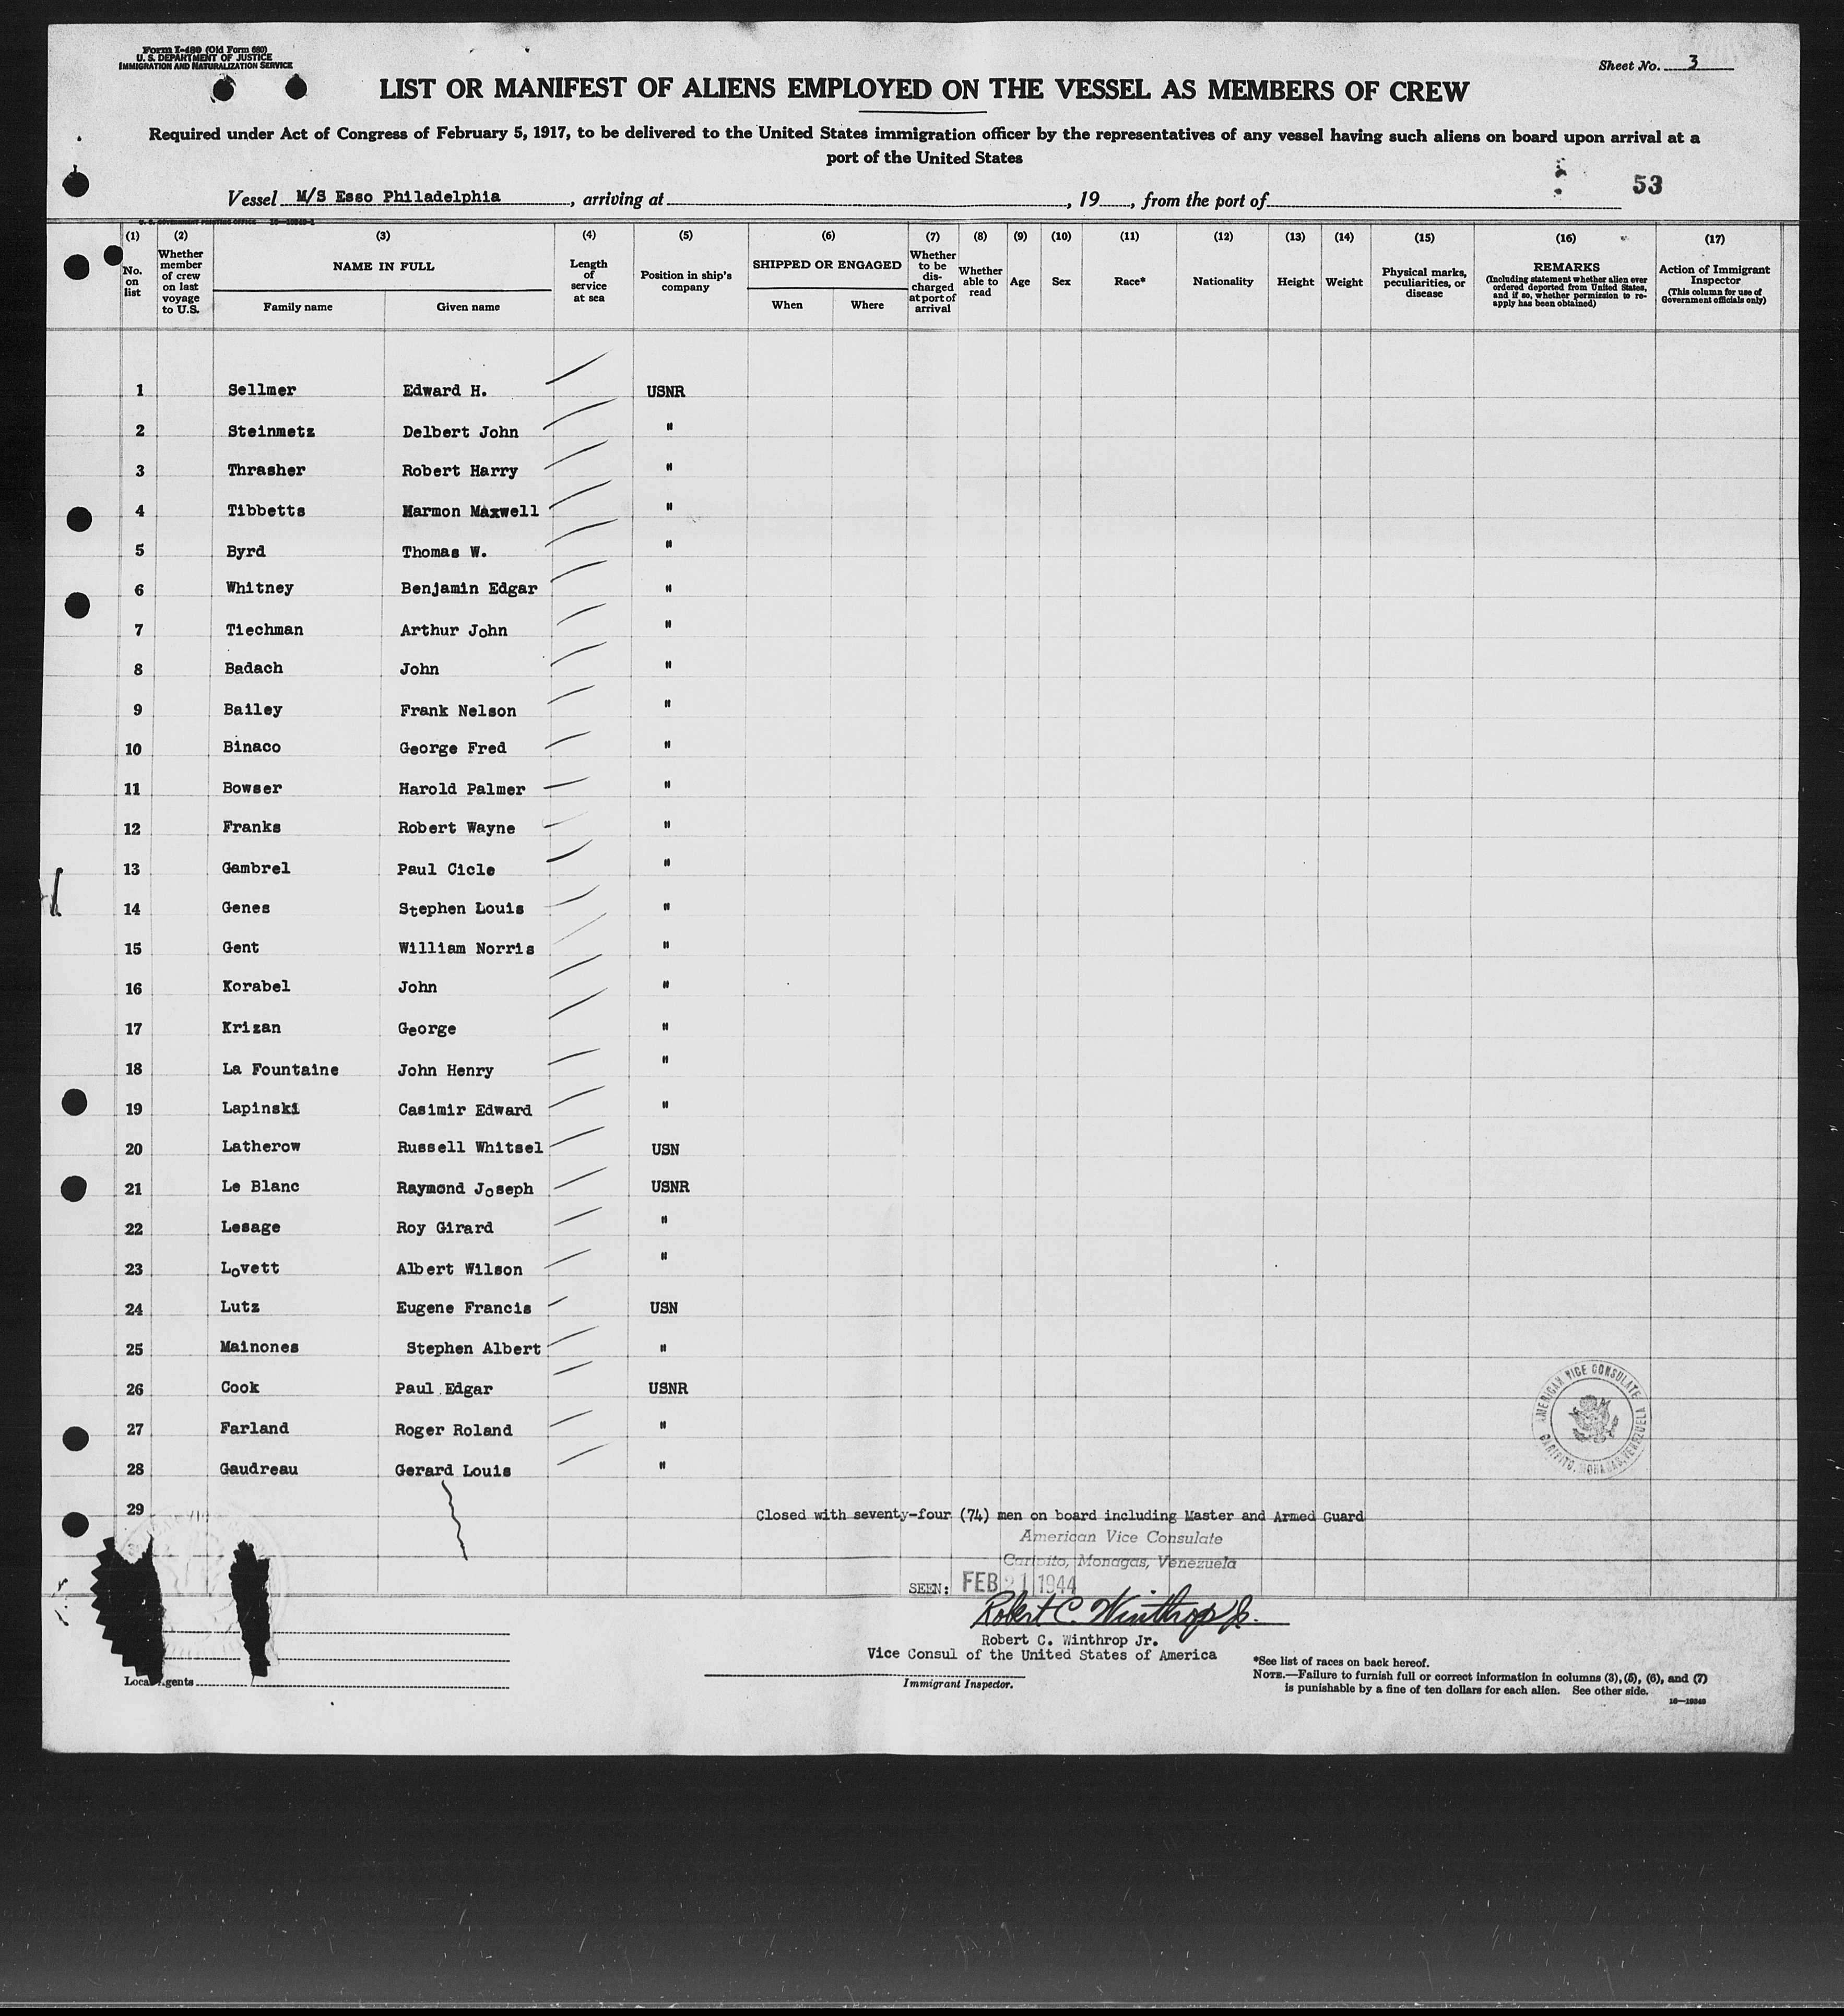 Form I-480 (Old Form 680)
U. S. DEPARTMENT OF JUSTICE
IMMIGRATION AND NATURALIZATION SERVICE
Sheet No. 3
LIST OR MANIFEST OF ALIENS EMPLOYED ON THE VESSEL AS MEMBERS OF CREW
Required under Act of Congress of February 5, 1917, to be delivered to the United States immigration officer by the representatives of any vessel having such aliens on board upon arrival at a
port of the United States
53
Vessel M/S Esso Philadelphia, arriving at, 19, from the port of
(1) (2) (3) (4) (5) (6) (7) (8) (9) (10) (11) (12) (13) (14) (15) (16) (17)
No. on list
Whether member of crew on last voyage to U.S.
NAME IN FULL
Family name
Given name
Length of service at sea
Position in ship's company
SHIPPED OR ENGAGED
When
Where
Whether to be discharged at port of arrival
Whether able to read
Age
Sex
Race*
Nationality
Height
Weight
Physical marks, peculiarities, or disease
REMARKS
(Including statement whether alien ever ordered deported from United States, and if so, whether permission to reapply has been obtained)
Action of Immigrant Inspector
(This column for use of Government officials only)
1 Sellmer Edward H. USNR
2 Steinmetz Delbert John "
3 Thrasher Robert Harry "
4 Tibbetts Harmon Maxwell "
5 Byrd Thomas W. "
6 Whitney Benjamin Edgar "
7 Tiechman Arthur John "
8 Badach John "
9 Bailey Frank Nelson "
10 Binaco George Fred "
11 Bowser Harold Palmer "
12 Franks Robert Wayne "
13 Gambrel Paul Cicle "
14 Genes Stephen Louis "
15 Gent William Norris "
16 Korabel John "
17 Krizan George "
18 La Fountaine John Henry "
19 Lapinski Casimir Edward "
20 Latherow Russell Whitsel USN
21 Le Blanc Raymond Joseph USNR
22 Lesage Roy Girard "
23 Lovett Albert Wilson "
24 Lutz Eugene Francis USN
25 Mainones Stephen Albert "
26 Cook Paul Edgar USNR
27 Farland Roger Roland "
28 Gaudreau Gerard Louis "
29
AMERICAN VICE CONSULATE
CARIPITO, MONAGAS, VENEZUELA
Closed with seventy-four (74) men on board including Master and Armed Guard
American Vice Consulate
Caripito, Monagas, Venezuela
SEEN: FEB 21 1944
Robert C. Winthrop Jr.
Robert C. Winthrop Jr.
Vice Consul of the United States of America
Local Agents
Immigrant Inspector.
*See list of races on back hereof.
NOTE.—Failure to furnish full or correct information in columns (3), (5), (6), and (7)
is punishable by a fine of ten dollars for each alien. See other side.